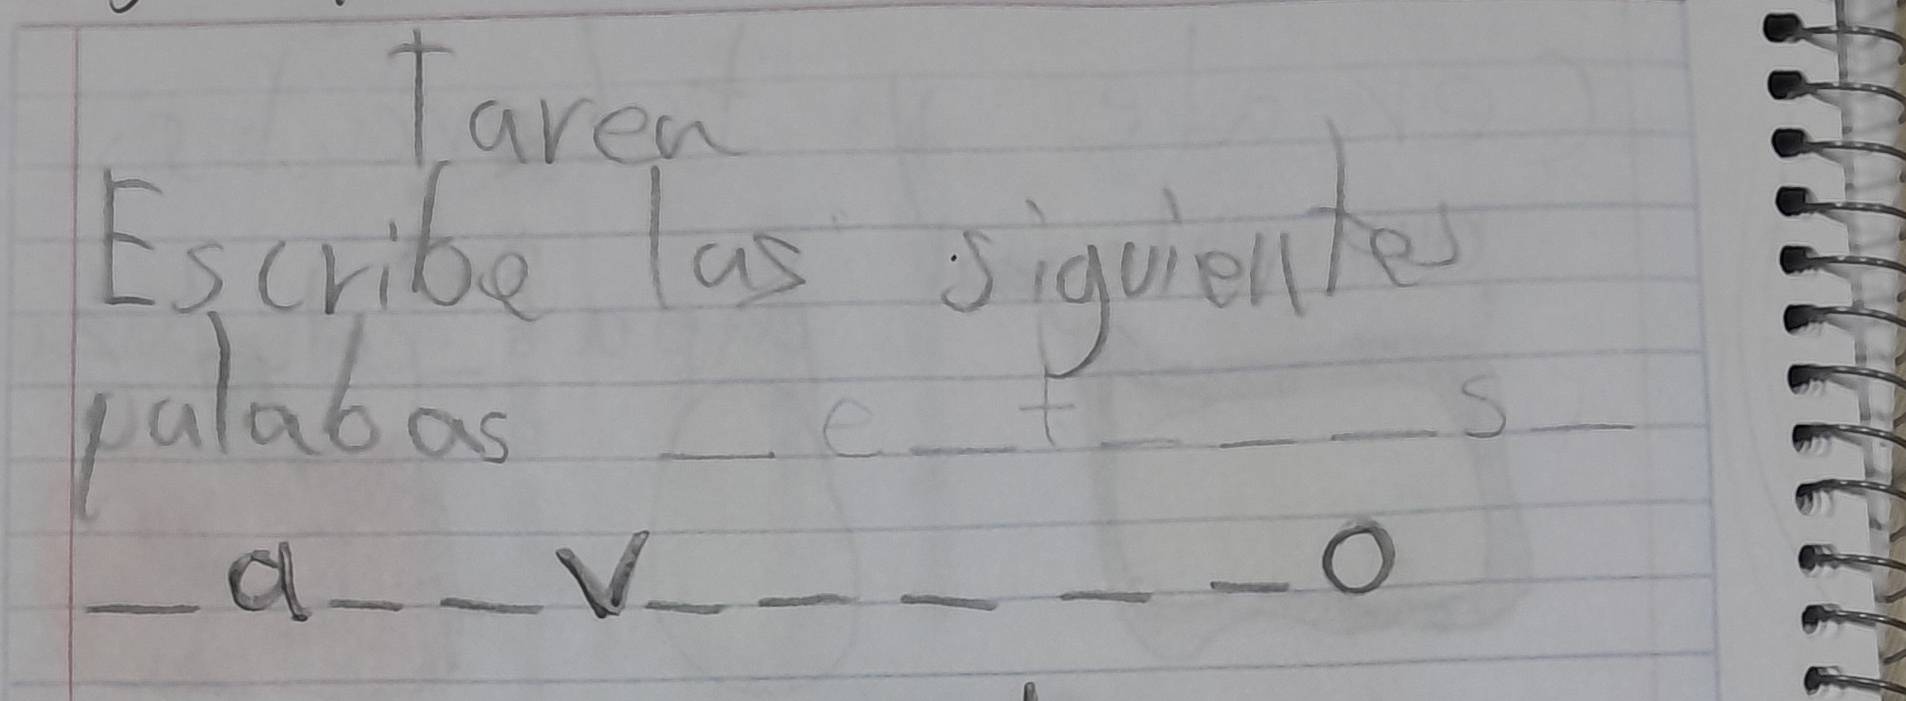 Tarea
Escribe las siguientes
palabas _ e _ t _ _ _ s _
_ a _ _ v _ _ _ _ _ o